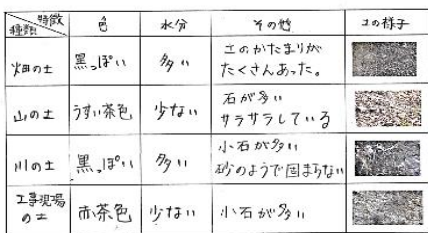 特徴
種類
色
水分
その他
土の様子
畑の土
黒っぽい
多い
土のかたまりが
たくさんあった。
山の土
うすい茶色
少ない
石が多い
サラサラしている
川の土
黒っぽい
多い
小石が多い
砂のようで固まらない
工事現場
の土
赤茶色
少ない
小石が多い